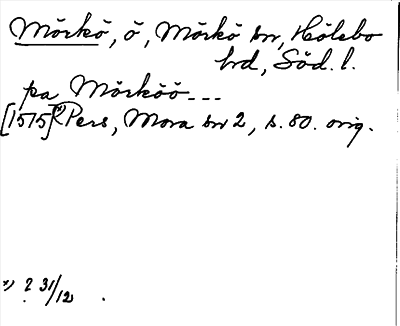 Mörkö, ö, Mörkö sn, Hölebo
hd, Söd. l.
pa Mörköö ---
[1515]*) Pers, Mora sn 2, s. 80. orig.
*) ? 31/12